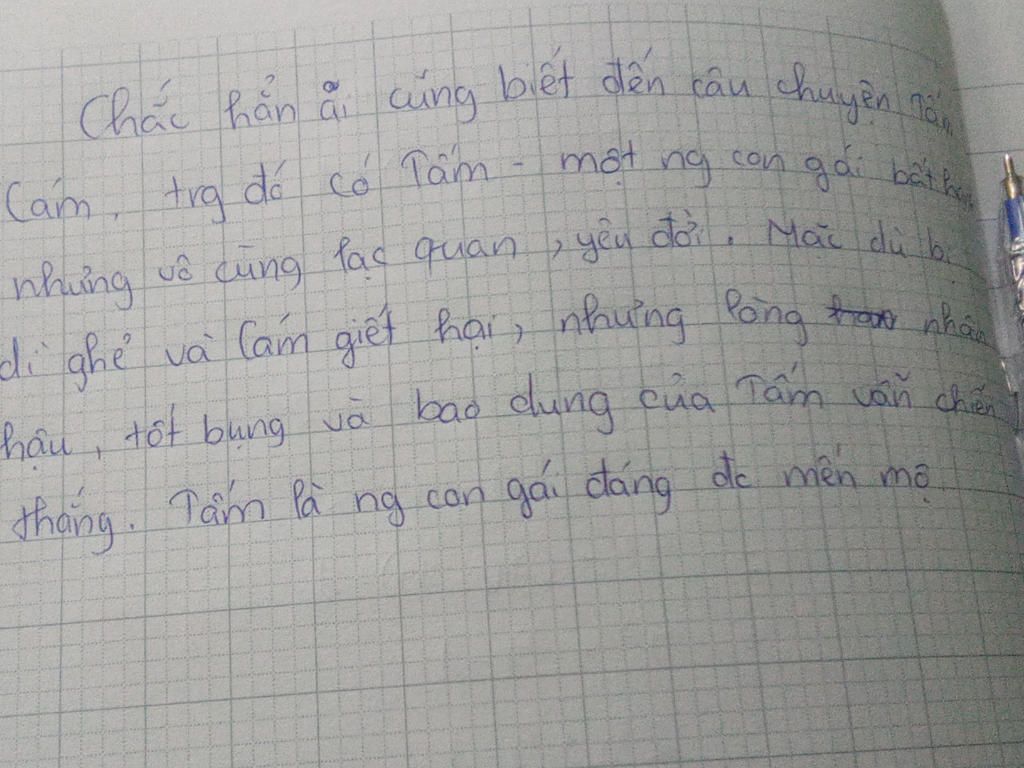 Chắc hẳn ai cũng biết đến câu chuyện Tấm
Cám, trg đó có Tấm - một ng con gái bất hạnh
nhưng vô cùng lạc quan, yêu đời. Mặc dù bị
dì ghẻ và Cám giết hại, nhưng lòng nhân
hậu, tốt bụng và bao dung của Tấm vẫn chiến
thắng. Tấm là ng con gái đáng đc mến mộ